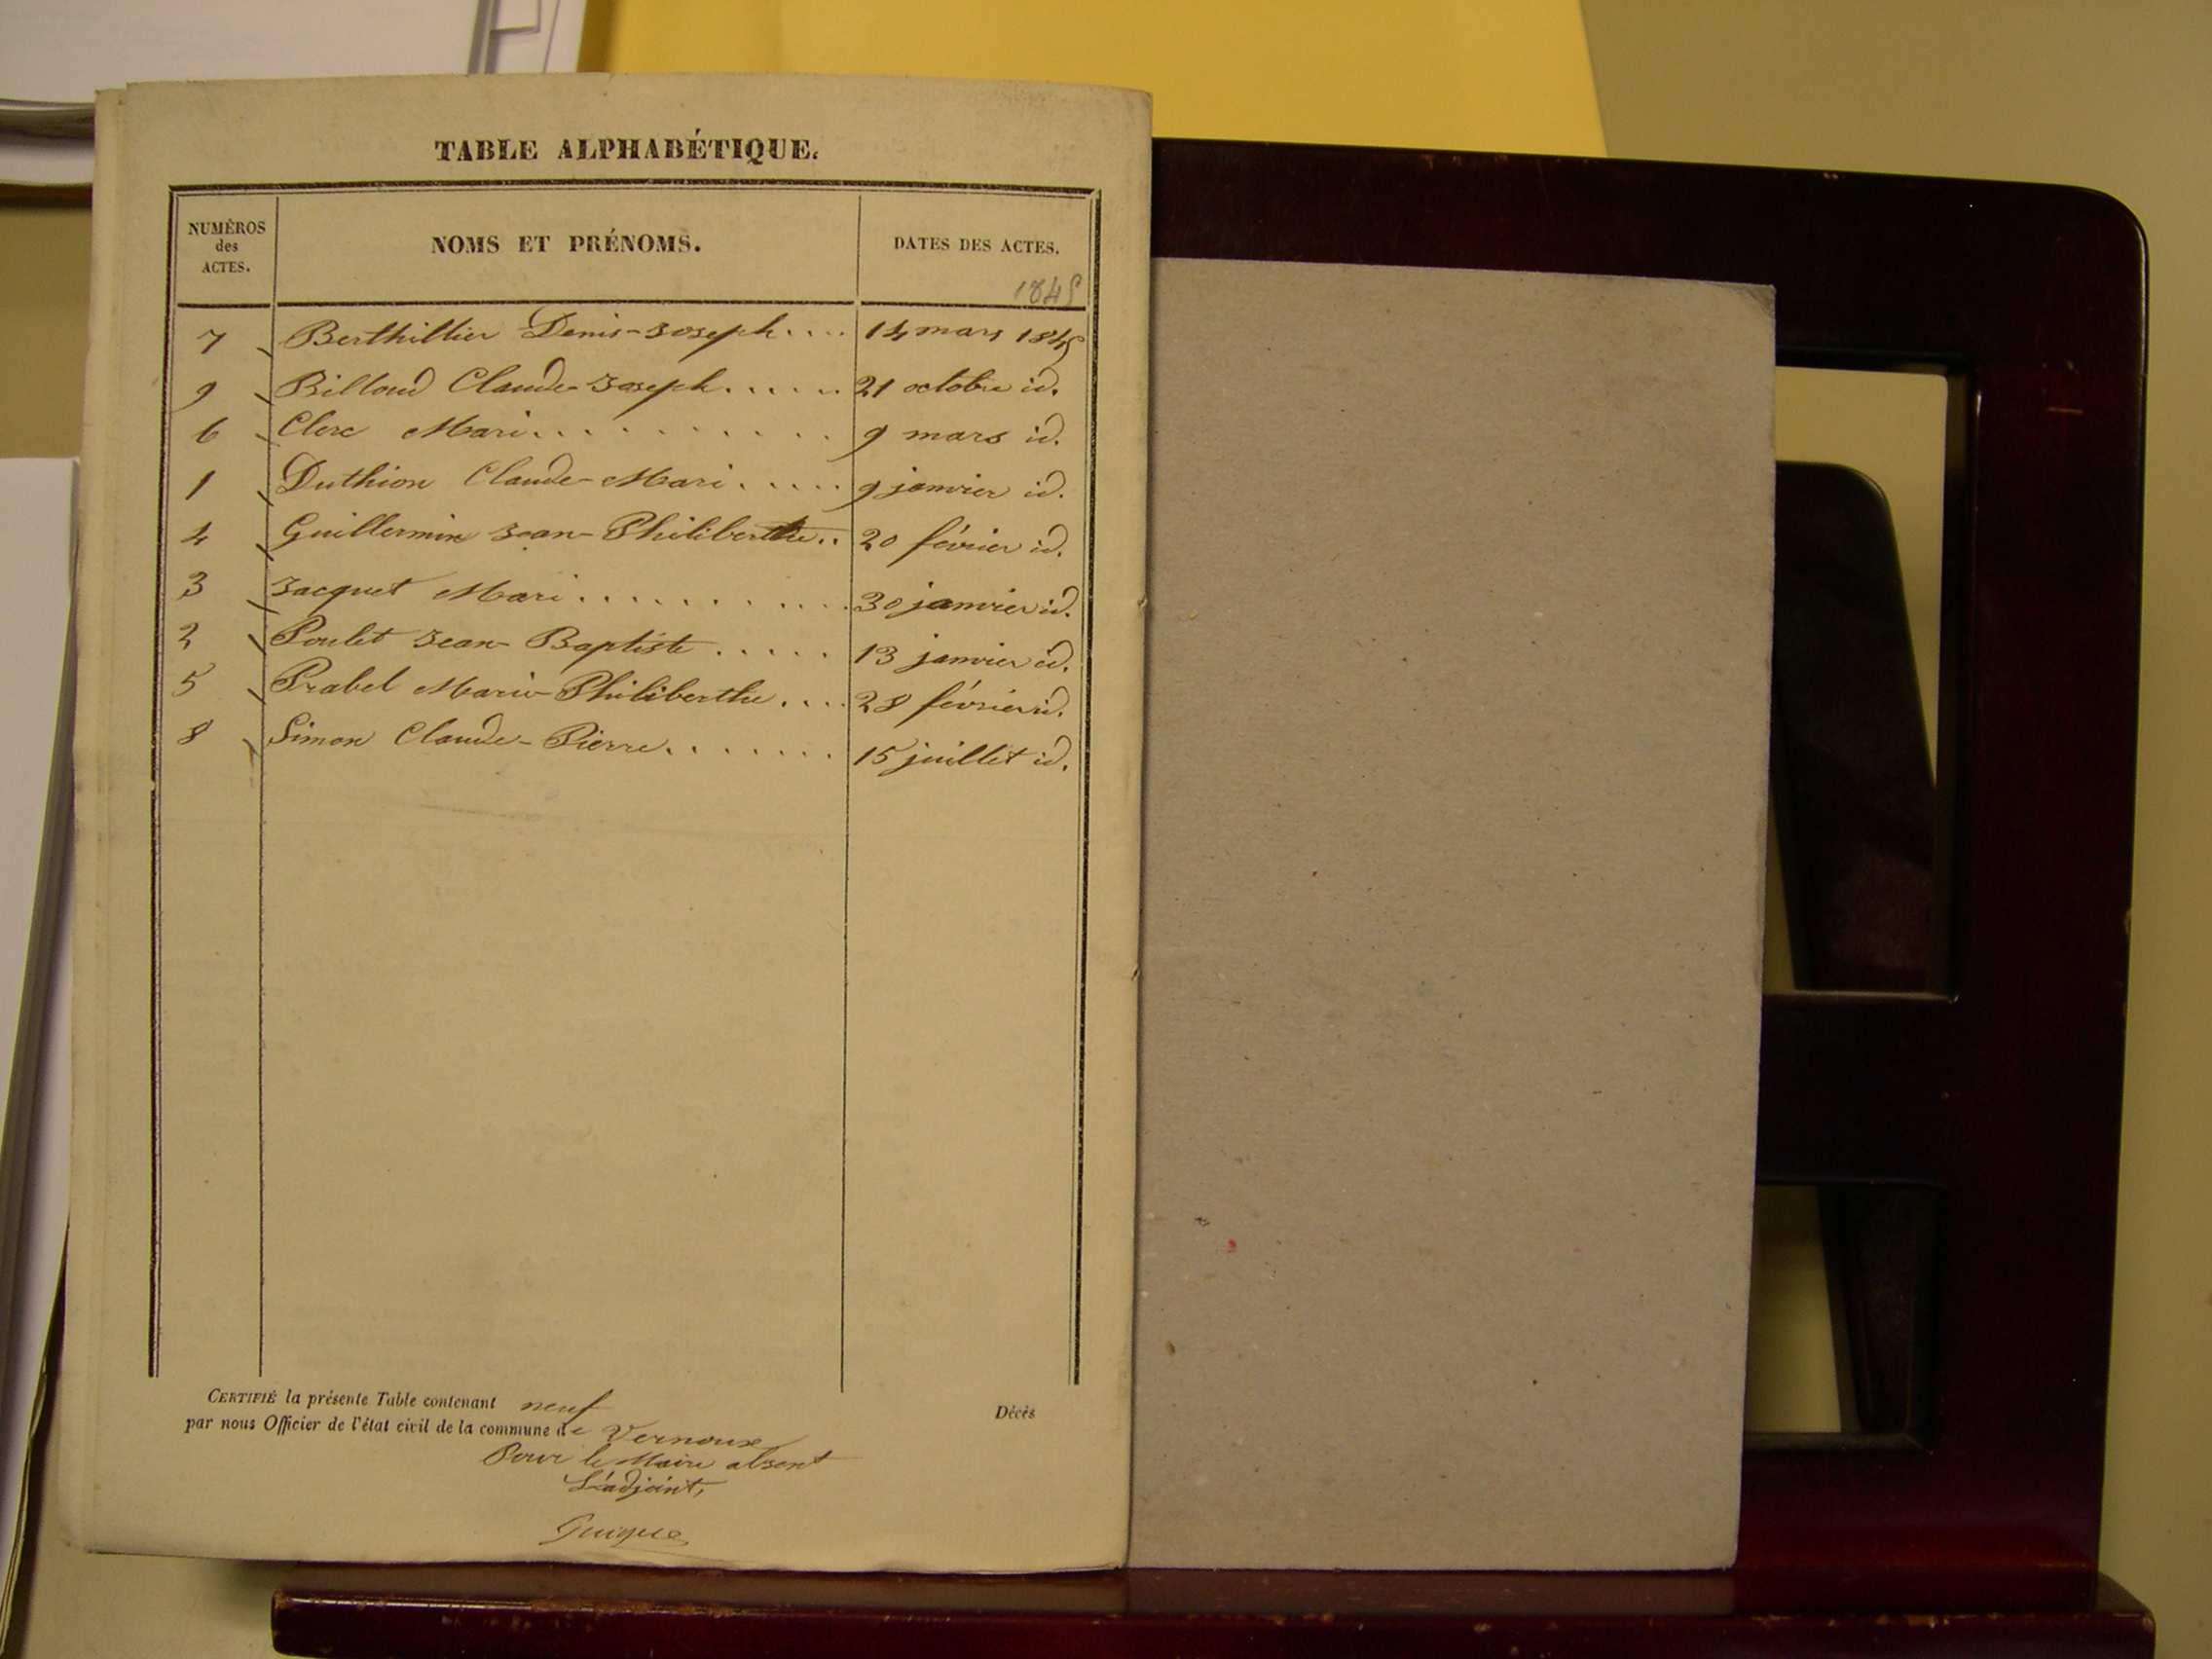 TABLE ALPHABÉTIQUE.
NUMÉROS des ACTES. NOMS ET PRÉNOMS. DATES DES ACTES.
1845
7 Berthillier Denis-Joseph.... 14 mars 1845
9 Billoud Claude-Joseph...... 21 octobre id.
6 Clerc Mari............ 9 mars id.
1 Duthion Claude-Mari..... 9 janvier id.
4 Guillermin Jean-Philiberthe.. 20 février id.
3 Jacquet Mari........... 30 janvier id.
2 Poulet Jean-Baptiste..... 13 janvier id.
5 Prabel Marie-Philiberthe.... 28 février id.
8 Simon Claude-Pierre....... 15 juillet id.
CERTIFIÉ la présente Table contenant neuf
par nous Officier de l'état civil de la commune de Vernoux
Décès
Pour le Maire absent
L'adjoint,
Guigue